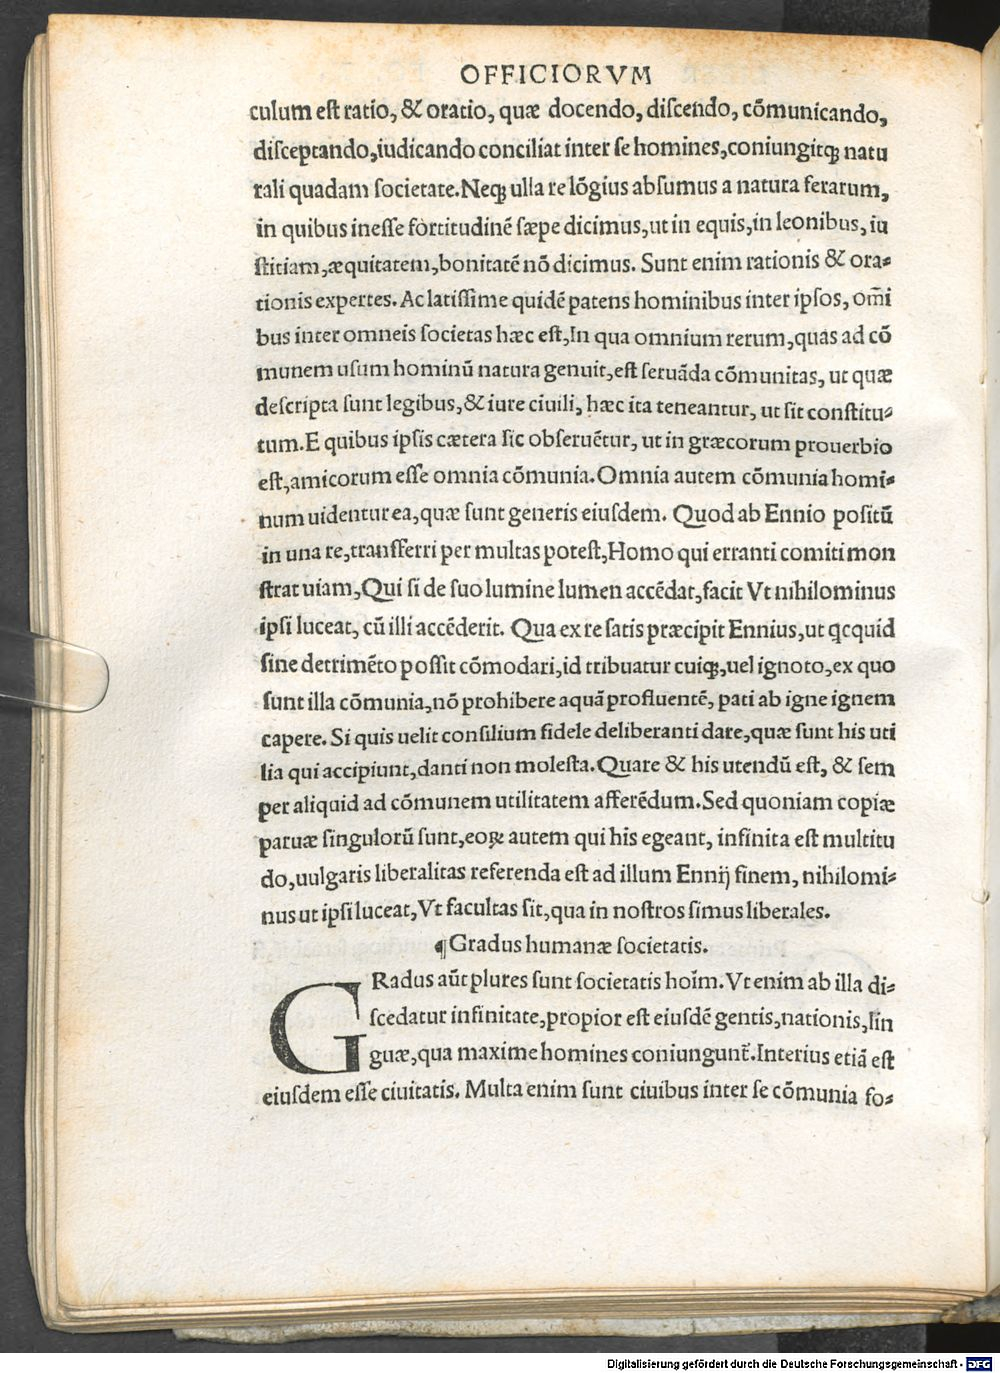 OFFICIORVM
culum eſt ratio, & oratio, quæ docendo, diſcendo, cõmunicando,
diſceptando,iudicando conciliat inter ſe homines,coniungitq; natu
rali quadam ſocietate.Neq; ulla re lõgius abſumus a natura ferarum,
in quibus ineſſe fortitudinẽ ſæpe dicimus,ut in equis,in leonibus, iu
ſtitiam,æquitatem,bonitatẽ nõ dicimus. Sunt enim rationis & ora-
tionis expertes. Ac latiſſime quidẽ patens hominibus inter ipſos, om̃i
bus inter omneis ſocietas hæc eſt,In qua omnium rerum,quas ad cõ
munem uſum hominũ natura genuit,eſt ſeruãda cõmunitas, ut quæ
deſcripta ſunt legibus,& iure ciuili, hæc ita teneantur, ut ſit conſtitu-
tum.E quibus ipſis cætera ſic obſeruẽtur, ut in græcorum prouerbio
eſt,amicorum eſſe omnia cõmunia.Omnia autem cõmunia homi-
num uidentur ea,quæ ſunt generis eiuſdem. Quod ab Ennio poſitũ
in una re,transferri per multas poteſt,Homo qui erranti comiti mon
ſtrat uiam,Qui ſi de ſuo lumine lumen accẽdat,facit Vt nihilominus
ipſi luceat, cũ illi accẽderit. Qua ex re ſatis præcipit Ennius,ut qcquid
ſine detrimẽto poſſit cõmodari,id tribuatur cuiq;,uel ignoto,ex quo
ſunt illa cõmunia,nõ prohibere aquã profluentẽ, pati ab igne ignem
capere. Si quis uelit conſilium fidele deliberanti dare,quæ ſunt his uti
lia qui accipiunt,danti non moleſta.Quare & his utendũ eſt, & ſem
per aliquid ad cõmunem utilitatem afferẽdum.Sed quoniam copiæ
paruæ ſingulorũ ſunt,eoꝝ autem qui his egeant, infinita eſt multitu
do,uulgaris liberalitas referenda eſt ad illum Ennij finem, nihilomi-
nus ut ipſi luceat,Vt facultas ſit,qua in noſtros ſimus liberales.
¶Gradus humanæ ſocietatis.
GRadus aũt plures ſunt ſocietatis hoĩm. Vt enim ab illa di-
ſcedatur infinitate,propior eſt eiuſdẽ gentis,nationis,lin
guæ,qua maxime homines coniungunt̃.Interius etiã eſt
eiuſdem eſſe ciuitatis. Multa enim ſunt ciuibus inter ſe cõmunia fo-
Digitalisierung gefördert durch die Deutsche Forschungsgemeinschaft - DFG